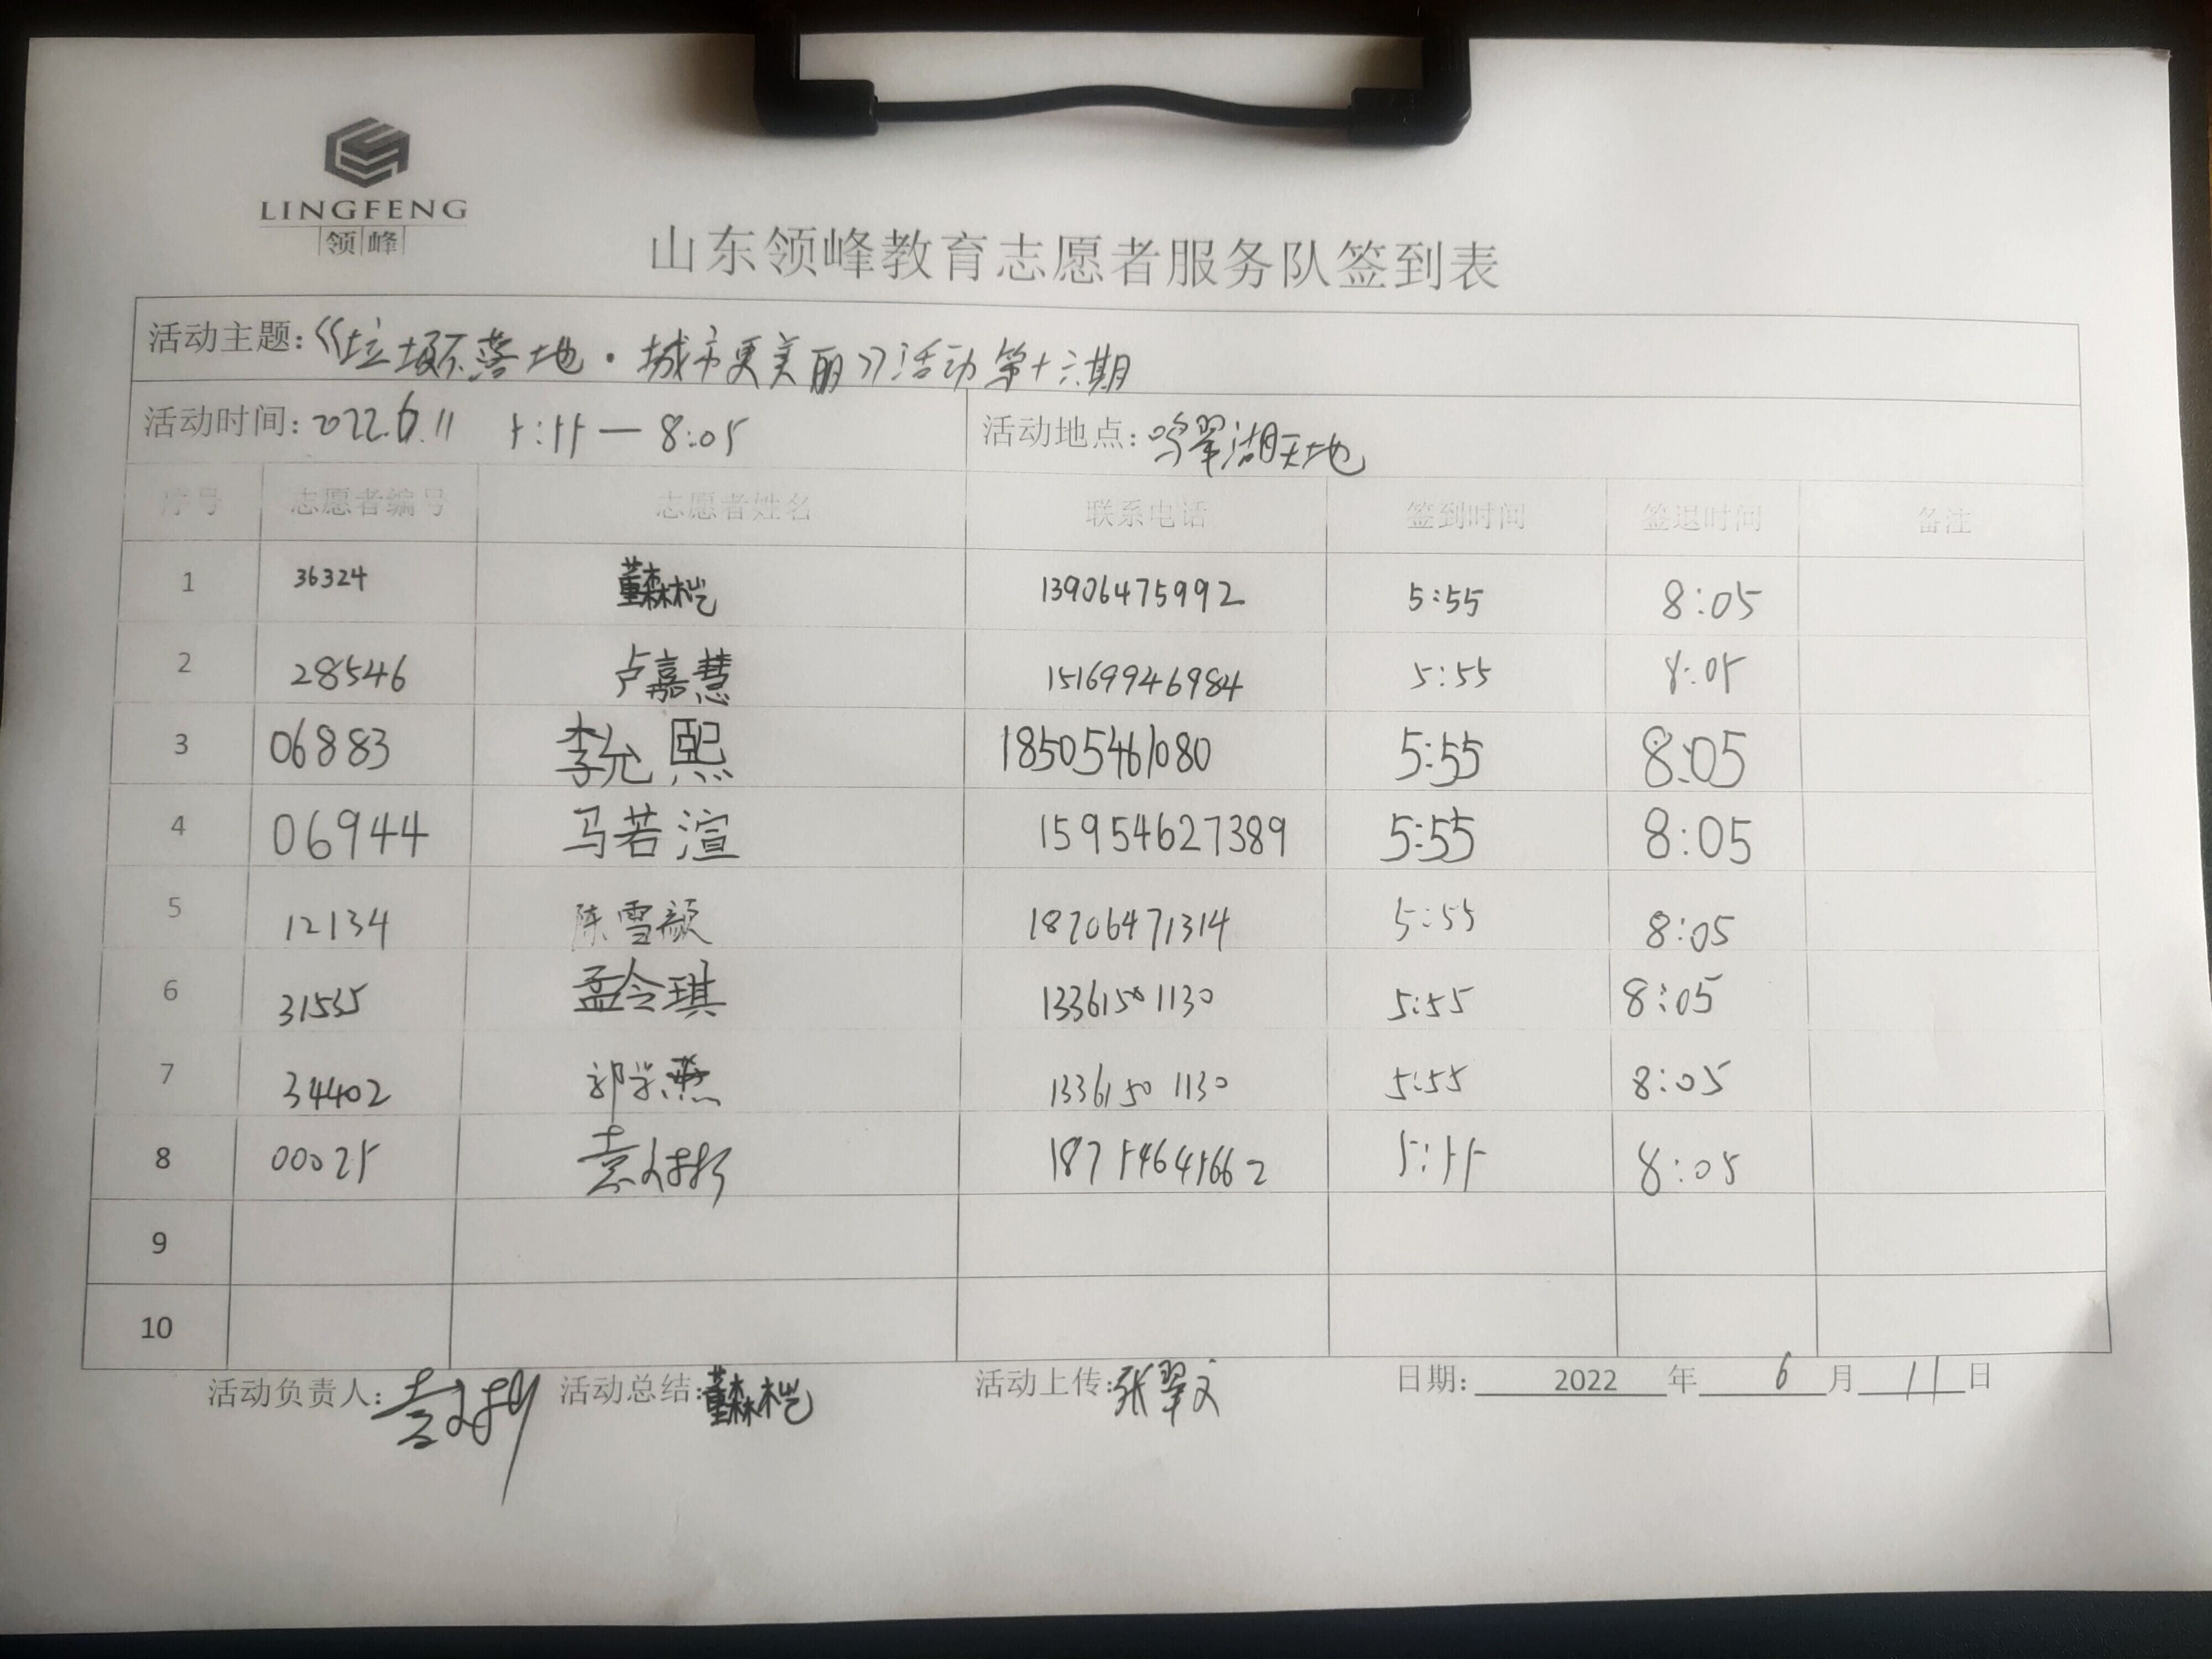 LINGFENG
领峰
山东领峰教育志愿者服务队签到表
活动主题:《垃圾不落地·城市更美丽》活动第十六期
活动时间:2022.6.11 5:55—8:05 活动地点:鸣翠湖天地
序号 志愿者编号 志愿者姓名 联系电话 签到时间 签退时间 备注
1 36324 董森桤 13906475992 5:55 8:05
2 28546 卢嘉慧 15169946984 5:55 8:05
3 06883 李允熙 18505461080 5:55 8:05
4 06944 马若渲 15954627389 5:55 8:05
5 12134 陈雪颜 18706471314 5:55 8:05
6 31535 孟令琪 13361501130 5:55 8:05
7 34402 郭学燕 13361501130 5:55 8:05
8 00025 18754641662 5:55 8:05
9
10
活动负责人: 活动总结:董森桤 活动上传:张翠文 日期: 2022 年 6 月 11 日